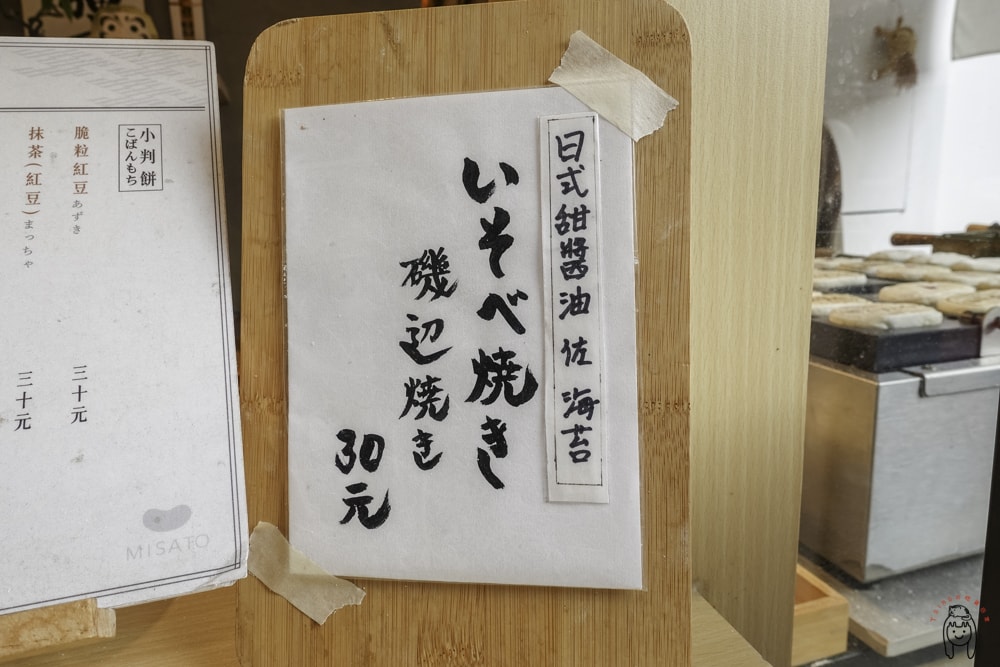 日式甜醬油 佐 海苔
いそべ焼き
磯辺焼き
30元
小判餅
こばんもち
脆粒紅豆 あずき 三十元
抹茶(紅豆) まっちゃ 三十元
MISATO